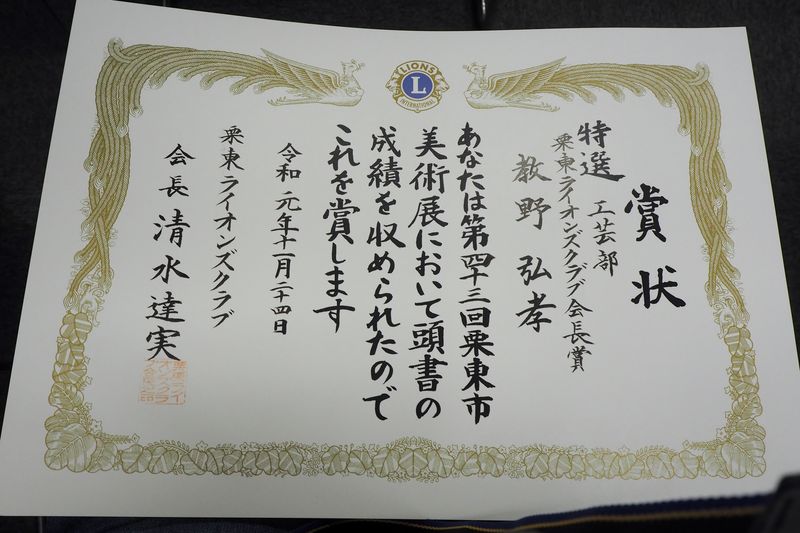 LIONS
L
INTERNATIONAL
賞状
特選 工芸部
栗東ライオンズクラブ会長賞
教野弘孝
あなたは第四十三回栗東市
美術展において頭書の
成績を収められたので
これを賞します
令和元年十一月二十四日
栗東ライオンズクラブ
会長 清水達実